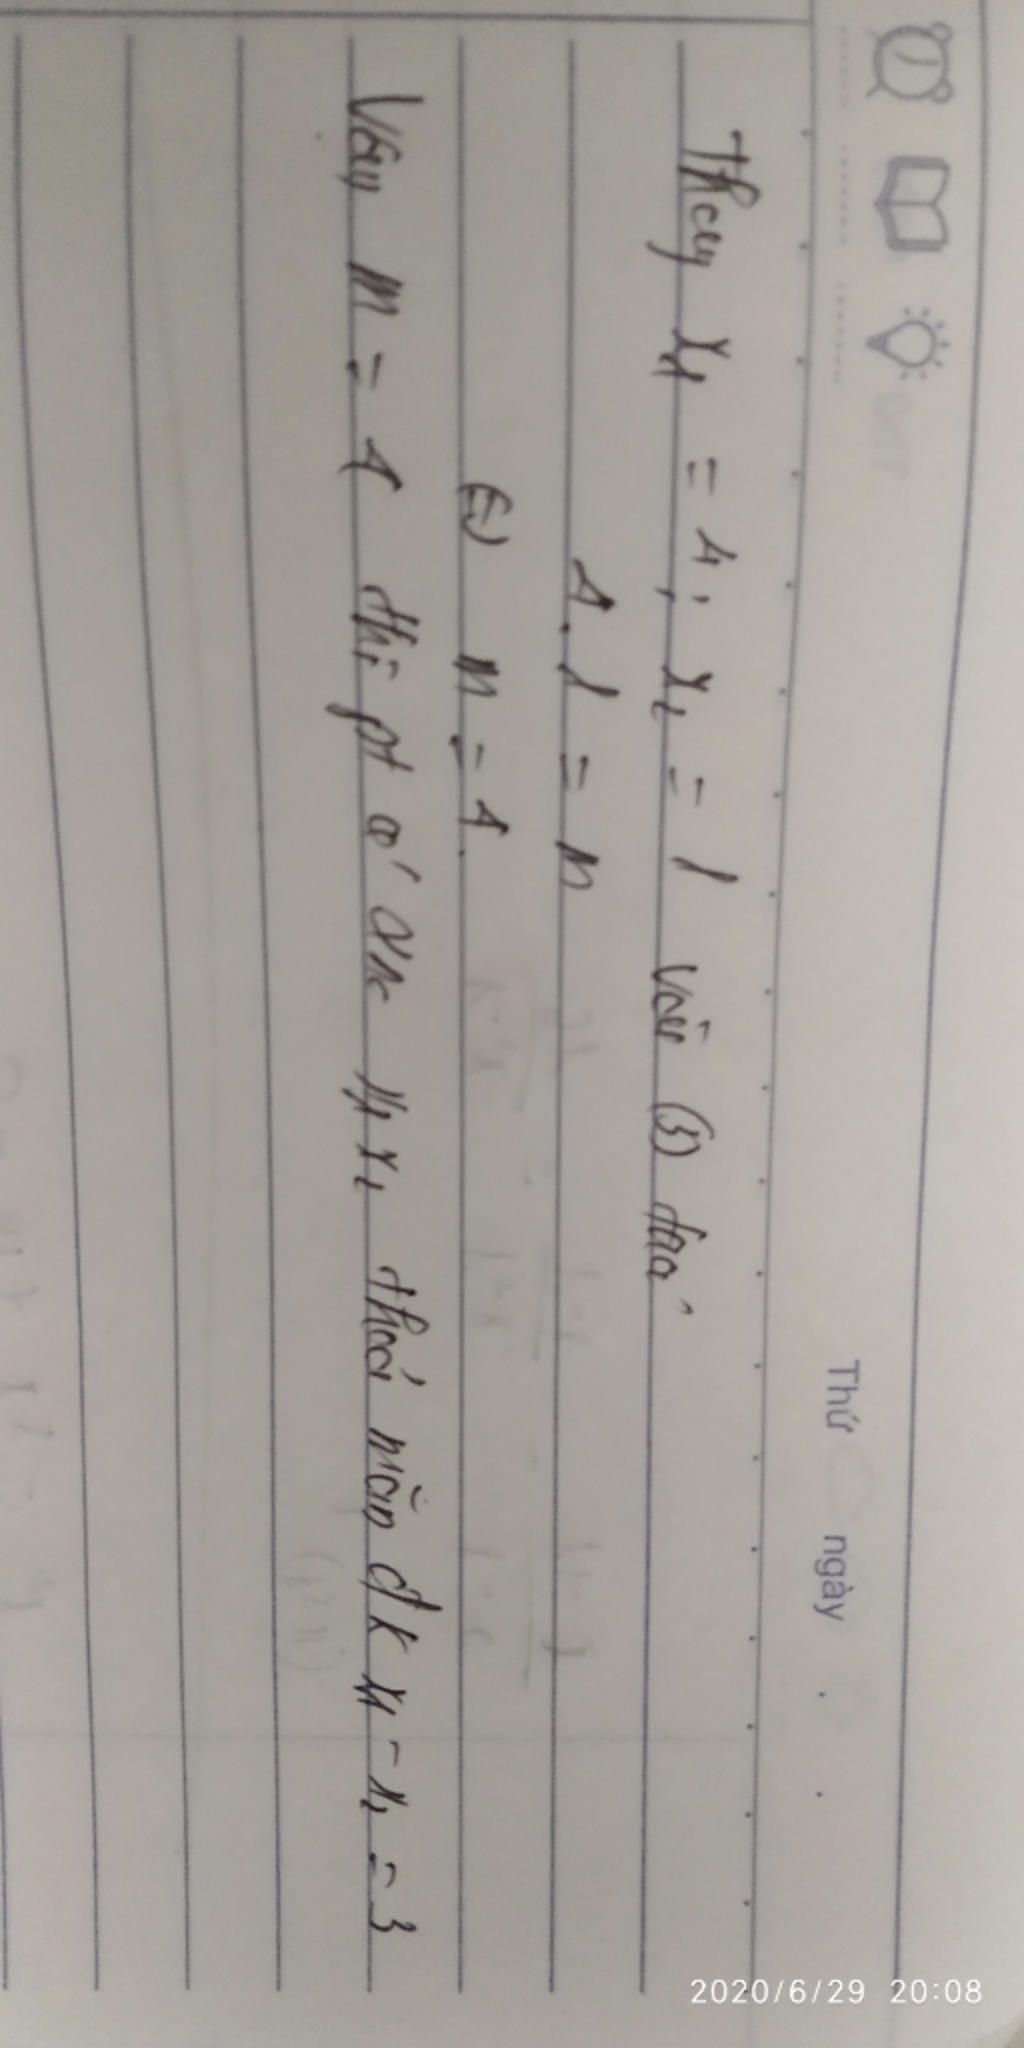 Thứ ngày
Thay x₁ = 4; x₂ = 1 vào (3) ta có
4.1 = m
(=) m = 4.
Vậy m = 4 thì pt có x₁ x₂ thoả mãn đk x₁ - x₂ = 3
2020/6/29 20:08